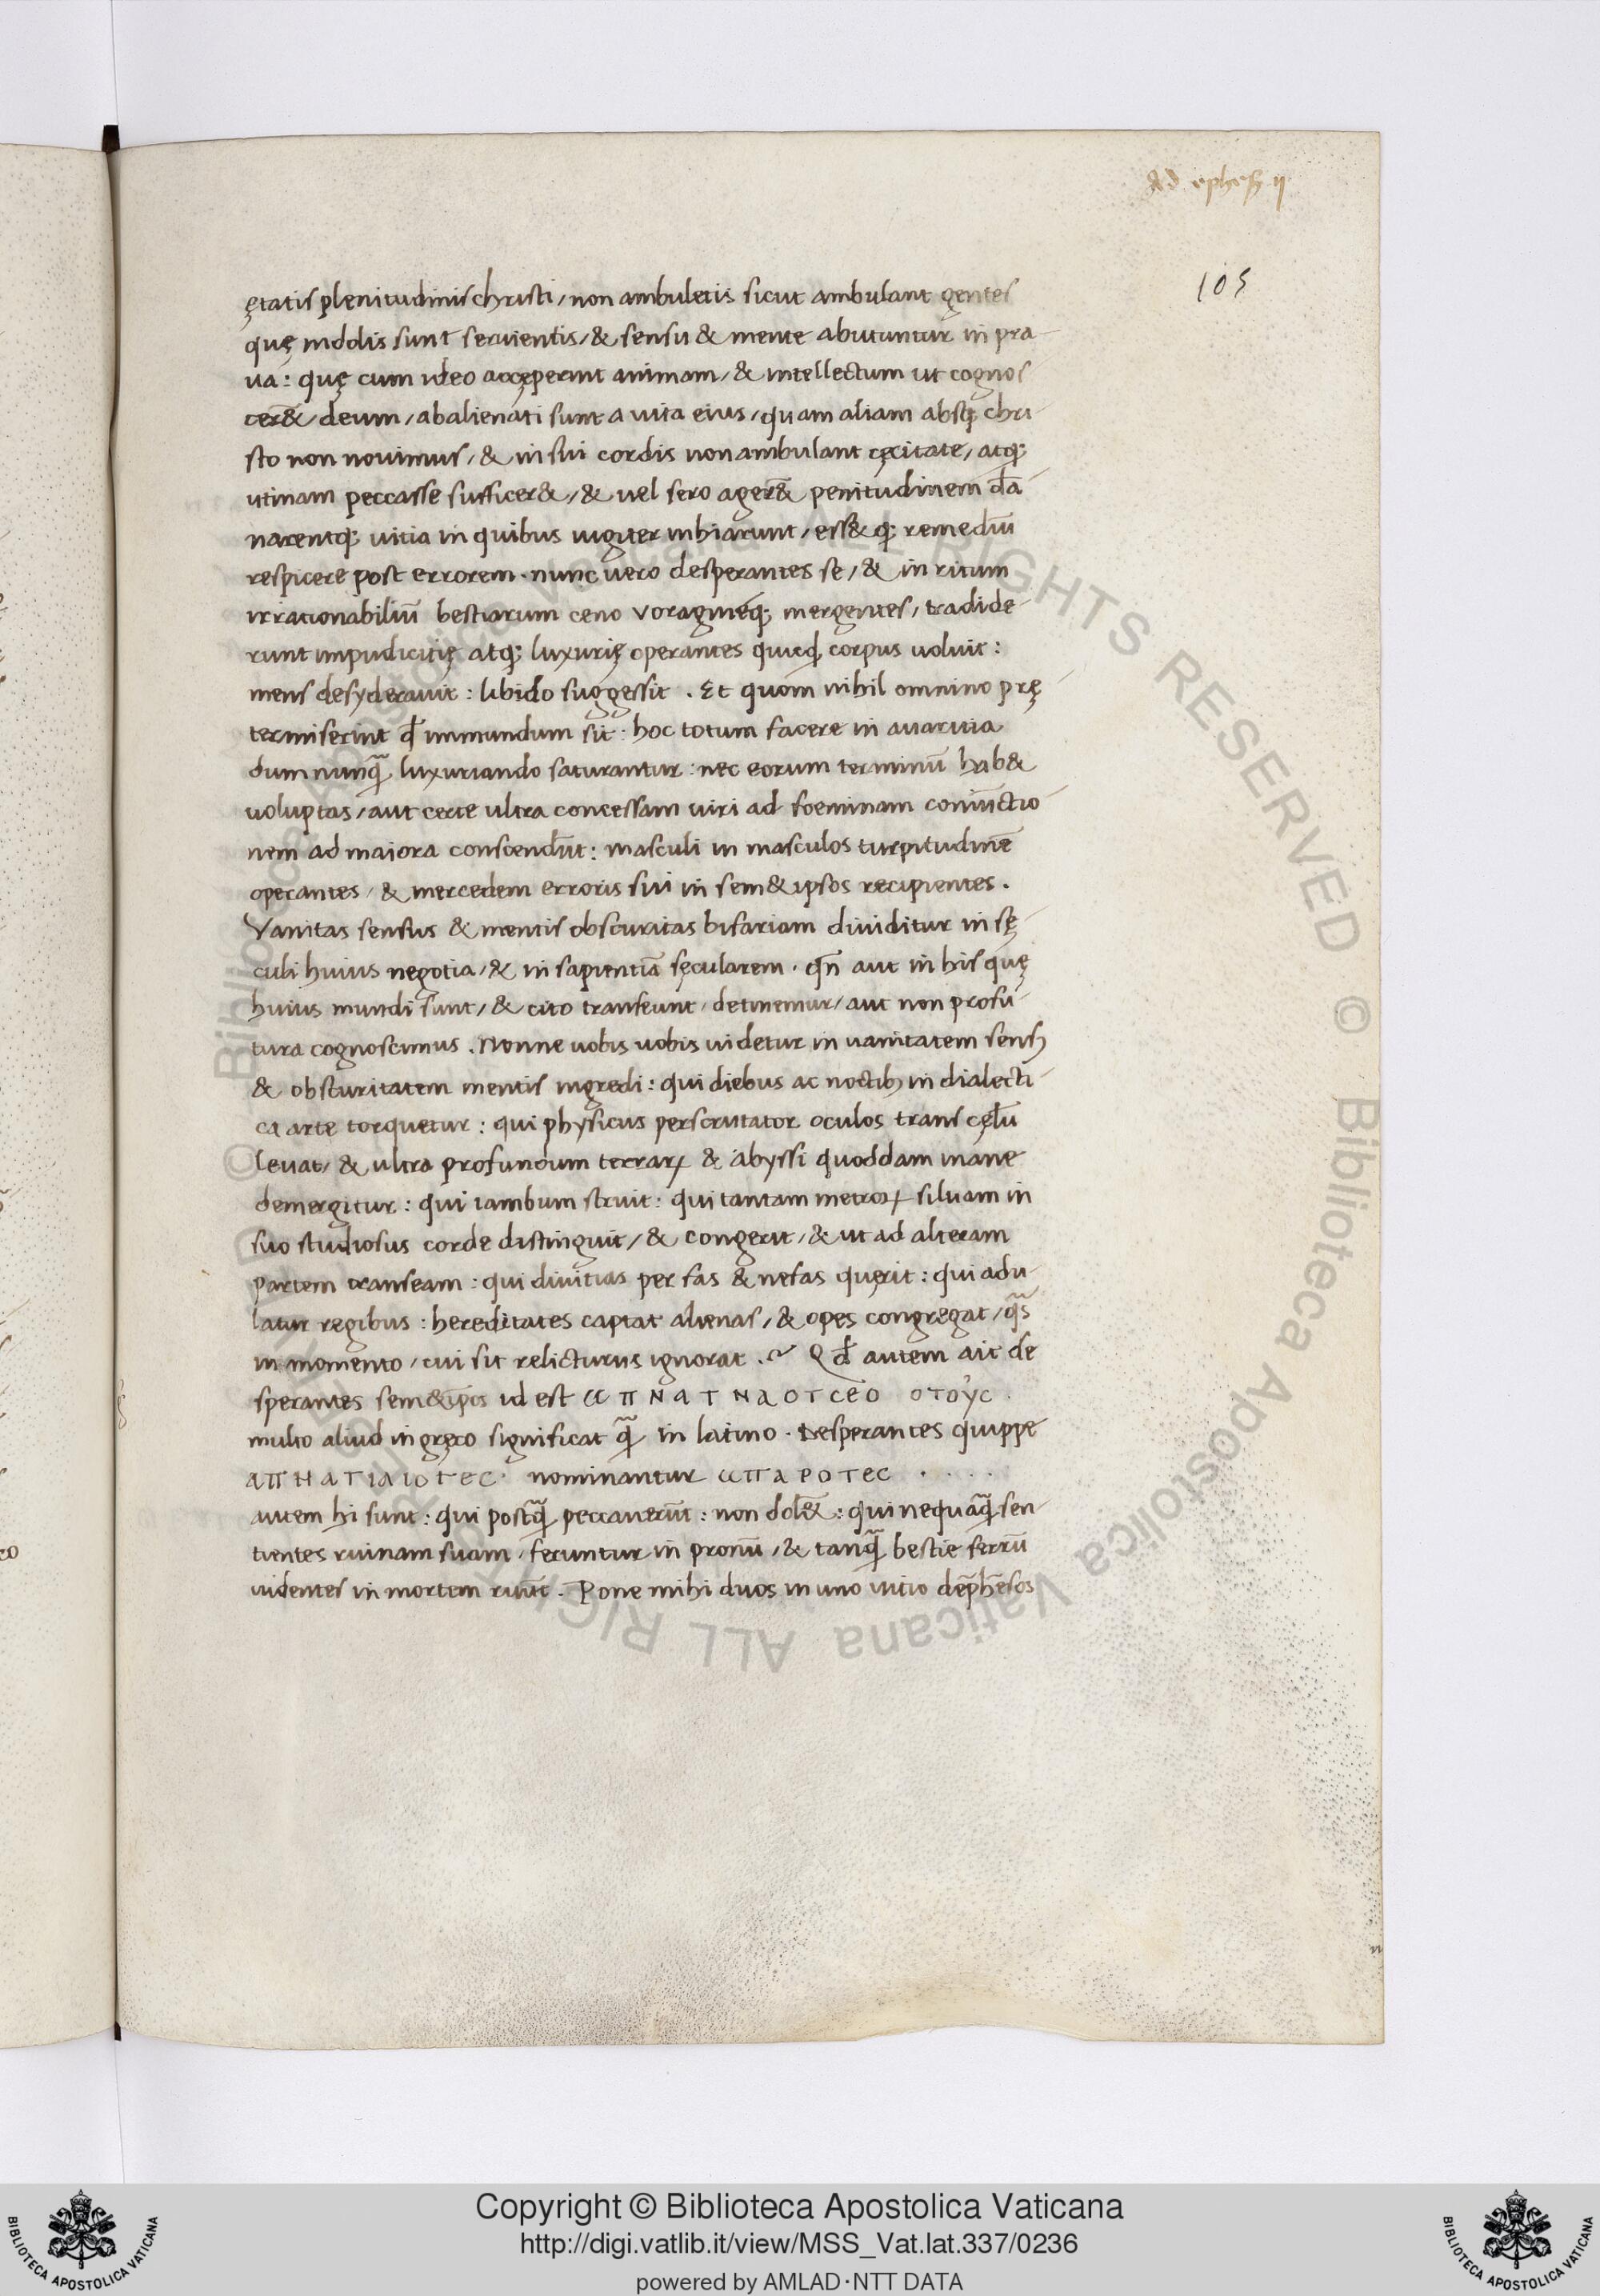 Ad ephes ii
105
ętatis plenitudinis christi / non ambuletis sicut ambulant gentes
quę indolis sunt seruientis / & sensu & mente abutuntur in pra-
ua : quę cum ideo accęperint animam / & intellectum ut cognos
cer& deum / abalienati sunt a uita eius / quam aliam absq; chri-
sto non nouimus / & in sui cordis non ambulant cęcitate / atq;
utinam peccasse sufficer& / & uel sero ager& penitudinem dā-
narentq; uitia in quibus iugiter inhiarunt / ess& q; remediū
respicere post errorem . nunc uero desperantes se / & in ritum
irrationabiliū bestiarum ceno voragineq; mergentes / tradide-
runt impudicitię atq; luxurię operantes quicqd corpus uoluit :
mens desyderauit : libido suggessit . Et quom nihil omnino prę
termiserint qđ immundum sit : hoc totum facere in auaritia
dum nunq̃ luxuriando saturantur : nec eorum terminū hab&
uoluptas / aut certe ultra concessam uiri ad foeminam coniūctio-
nem ad maiora conscendūt : masculi in masculos turpitudinē
operantes / & mercedem erroris sui in sem&ipsos recipientes .
Vanitas sensus & mentis obscuritas bifariam diuiditur in sę-
culi huius negotia / & in sapientiā sęcularem . qn̄ aut in his quę
huius mundi sunt / & cito transeunt / detinemur / aut non profu-
tura cognoscimus . Nonne uobis uobis uidetur in uanitatem sensꝫ
& obscuritatem mentis ingredi : qui diebus ac noctibꝫ in dialecti-
ca arte torquetur : qui physicus perscrutator oculos trans cęlū
leuat / & ultra profundum terrarꝝ & abyssi quoddam inane
demergitur : qui iambum struit : qui tantam metroꝝ siluam in
suo studiosus corde distinguit / & congerit / & ut ad alteram
partem transeam : qui diuitias per fas & nefas quęrit : qui adu-
latur regibus : hereditates captat alienas / & opes congregat / qãs
in momento / cui sit relicturus ignorat . Qđ autem ait de
sperantes sem&ip̄os id est απΝατΝαοτσεο οτοὐς .
multo aliud in gręco significat q̃ in latino . Desperantes quippe
απΗατιλιοτες . nominantur απαροτες . . . .
autem hi sunt : qui postq̃ peccauerūt : non dol& : qui nequaq̃ sen-
tientes ruinam suam / feruntur in pronū / & tanq̃ bestie ferrū
uidentes in mortem ruūt . Pone mihi duos in uno uitio dep̄hēsos
Copyright © Biblioteca Apostolica Vaticana
http://digi.vatlib.it/view/MSS_Vat.lat.337/0236
powered by AMLAD·NTT DATA
BIBLIOTECA APOSTOLICA VATICANA
BIBLIOTECA APOSTOLICA VATICANA